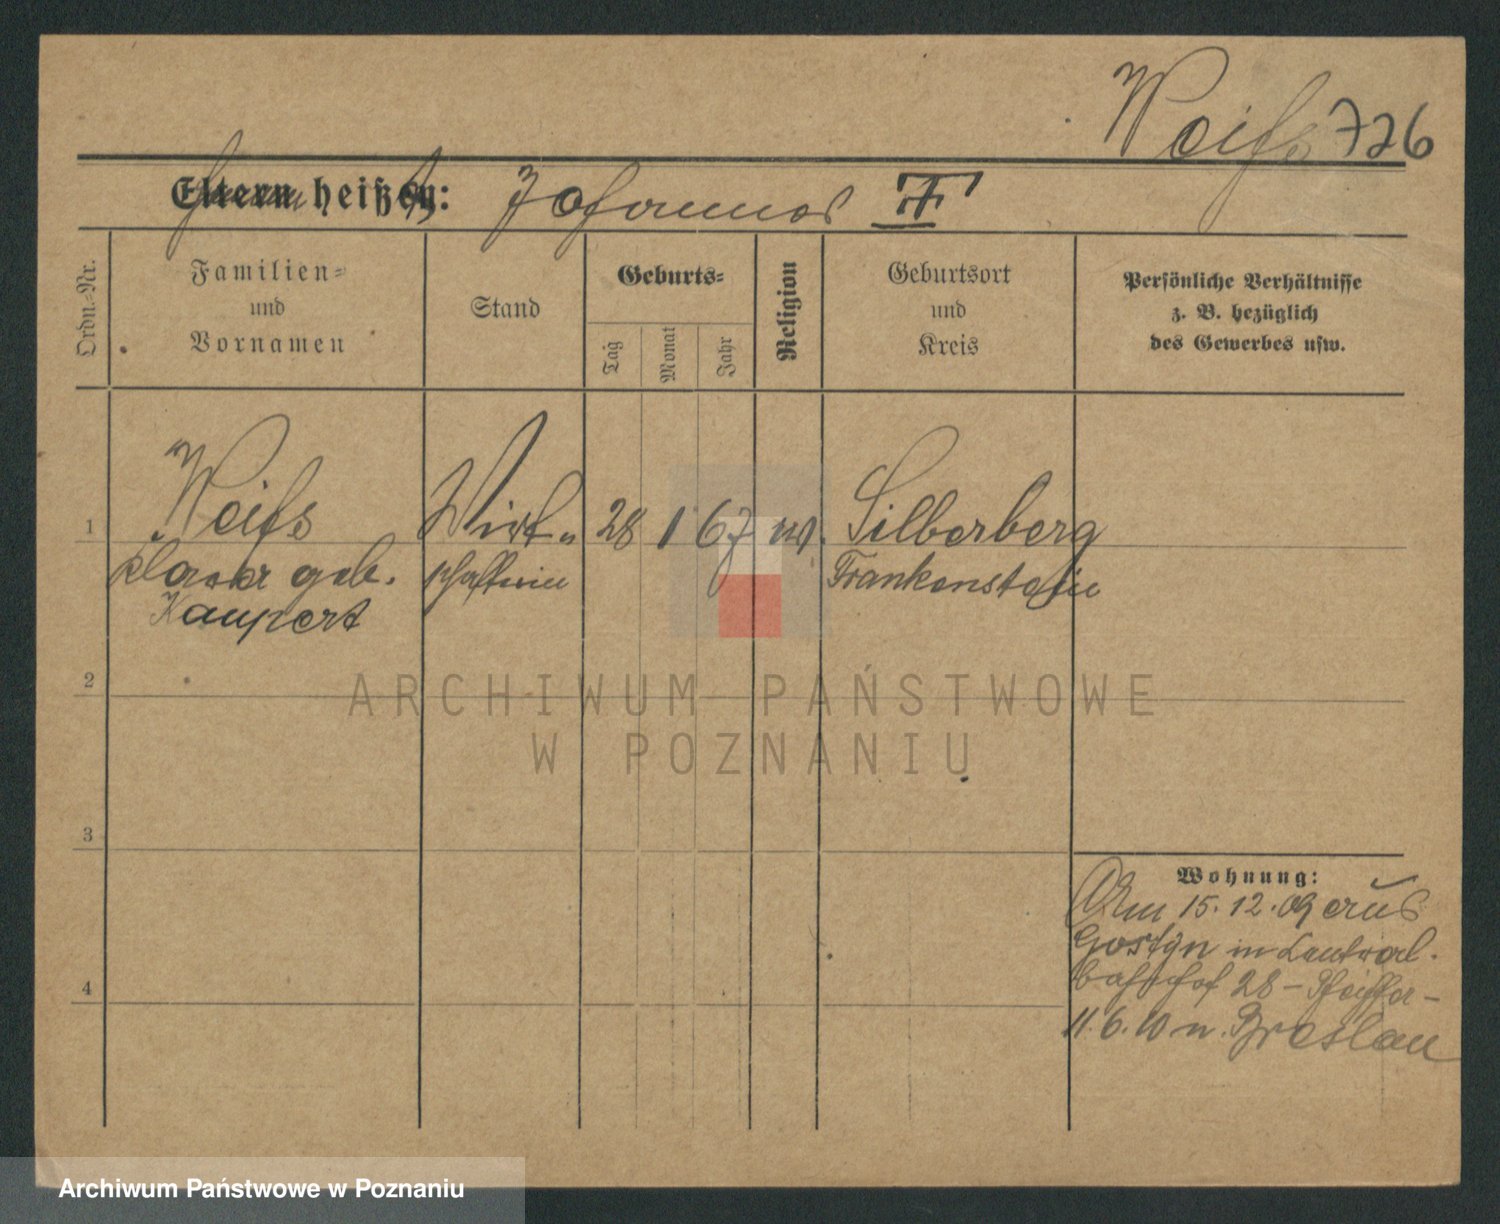 Weiß 726
Eltern heißen: Johannes
Ordn.-Nr.
Familien-
und
Vornamen
Stand
Geburts-
Tag
Monat
Jahr
Religion
Geburtsort
und
Kreis
Persönliche Verhältnisse
z. B. bezüglich
des Gewerbes usw.
1
Weiß Wirt- 28 1 67 ev. Silberberg
geb. schafterin Frankenstein
Kaupert
2
ARCHIWUM PAŃSTWOWE
W POZNANIU
3
Wohnung:
15.12.09 aus
Gostyn in Central-
4
bahnhof 28 – Pfeiffer –
11.6.10 n. Breslau
Archiwum Państwowe w Poznaniu